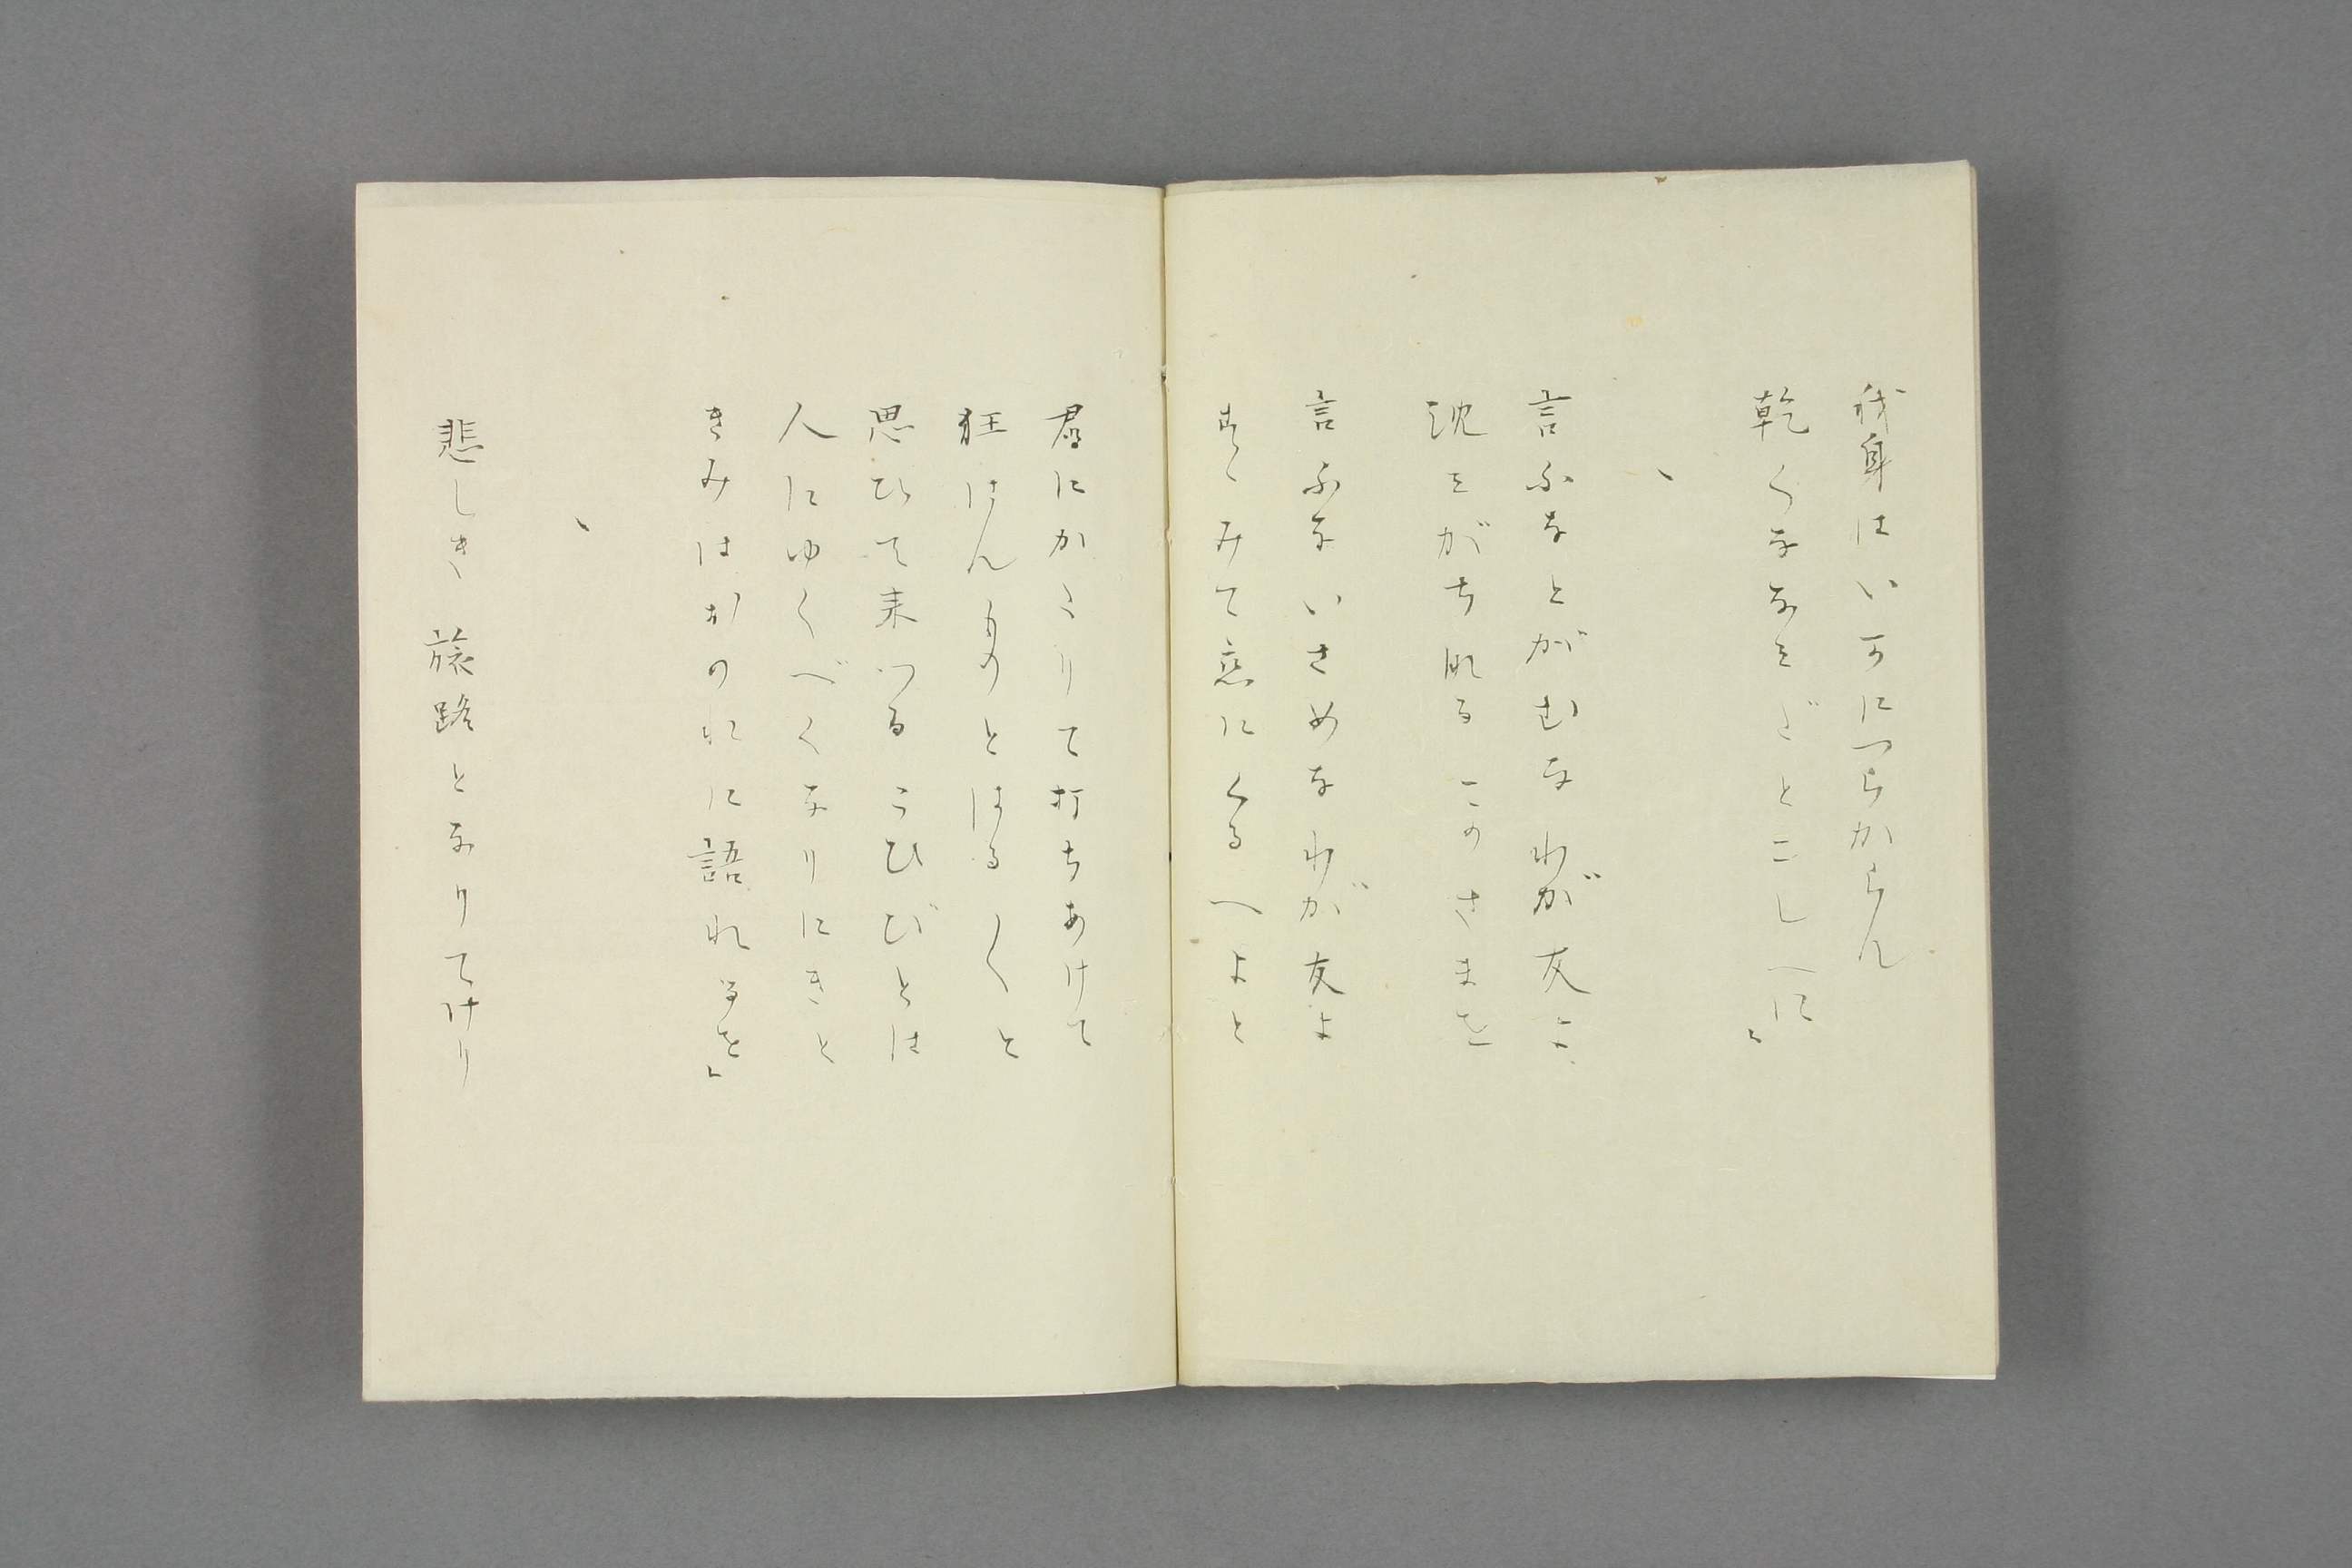 我身はいかにつらからん
乾くなみだとこしへに」
、
言ふなとがむなわが友よ
沈みがちなるこのさまを
言ふないさめなわが友よ
すゝみて恋にくるへよと
君にかくりて打ちあけて
狂はんものとはるゞと
思ひて来つるこひびとは
人にゆくべくなりにきと
きみはおのれに語れるを」
、
悲しき 旅路となりてけり